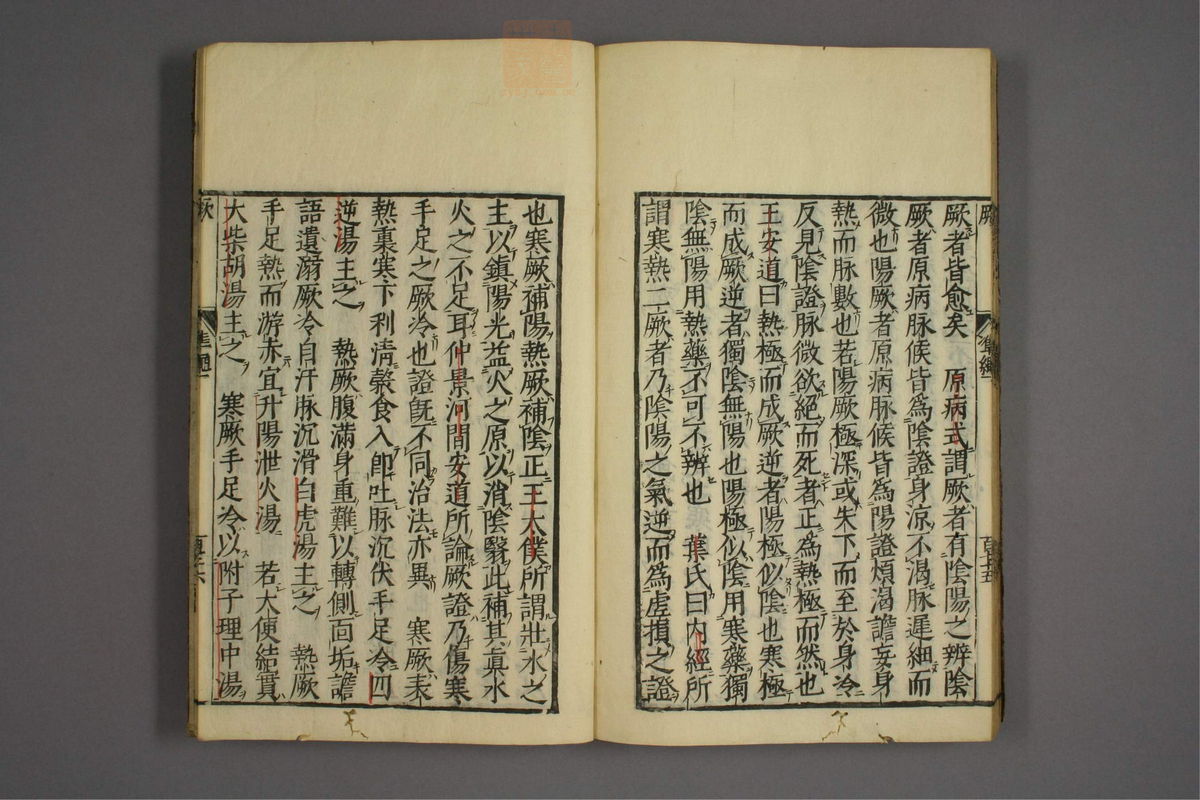 厥者皆愈矣　原病式謂厥者有陰陽之辨陰
厥者原病脉候皆爲陰證身涼不渴脉遲細而
微也陽厥者原病脉候皆爲陽證煩渴譫妄身
熱而脉數也若陽厥極深或失下而至於身冷
反見陰證脉微欲絕而死者正爲熱極而然也
王安道曰熱極而成厥逆者陽極似陰也寒極
而成厥逆者獨陰無陽也陽極似陰用寒藥獨
陰無陽用熱藥不可不辨也　葉氏曰内經所
謂寒熱二厥者乃陰陽之氣逆而爲虛損之證
也寒厥補陽熱厥補陰正王太僕所謂壯水之
主以鎮陽光益火之原以消陰翳此補其眞水
火之不足耳仲景河間安道所論厥證乃傷寒
手足之厥冷也證旣不同治法亦異　寒厥表
熱裏寒下利清穀食入即吐脉沉伏手足冷四
逆湯主之　熱厥腹滿身重難以轉側面垢譫
語遺溺厥冷自汗脉沉滑白虎湯主之　熱厥
手足熱而游赤宜升陽泄火湯　若大便結實
大柴胡湯主之　寒厥手足冷以附子理中湯